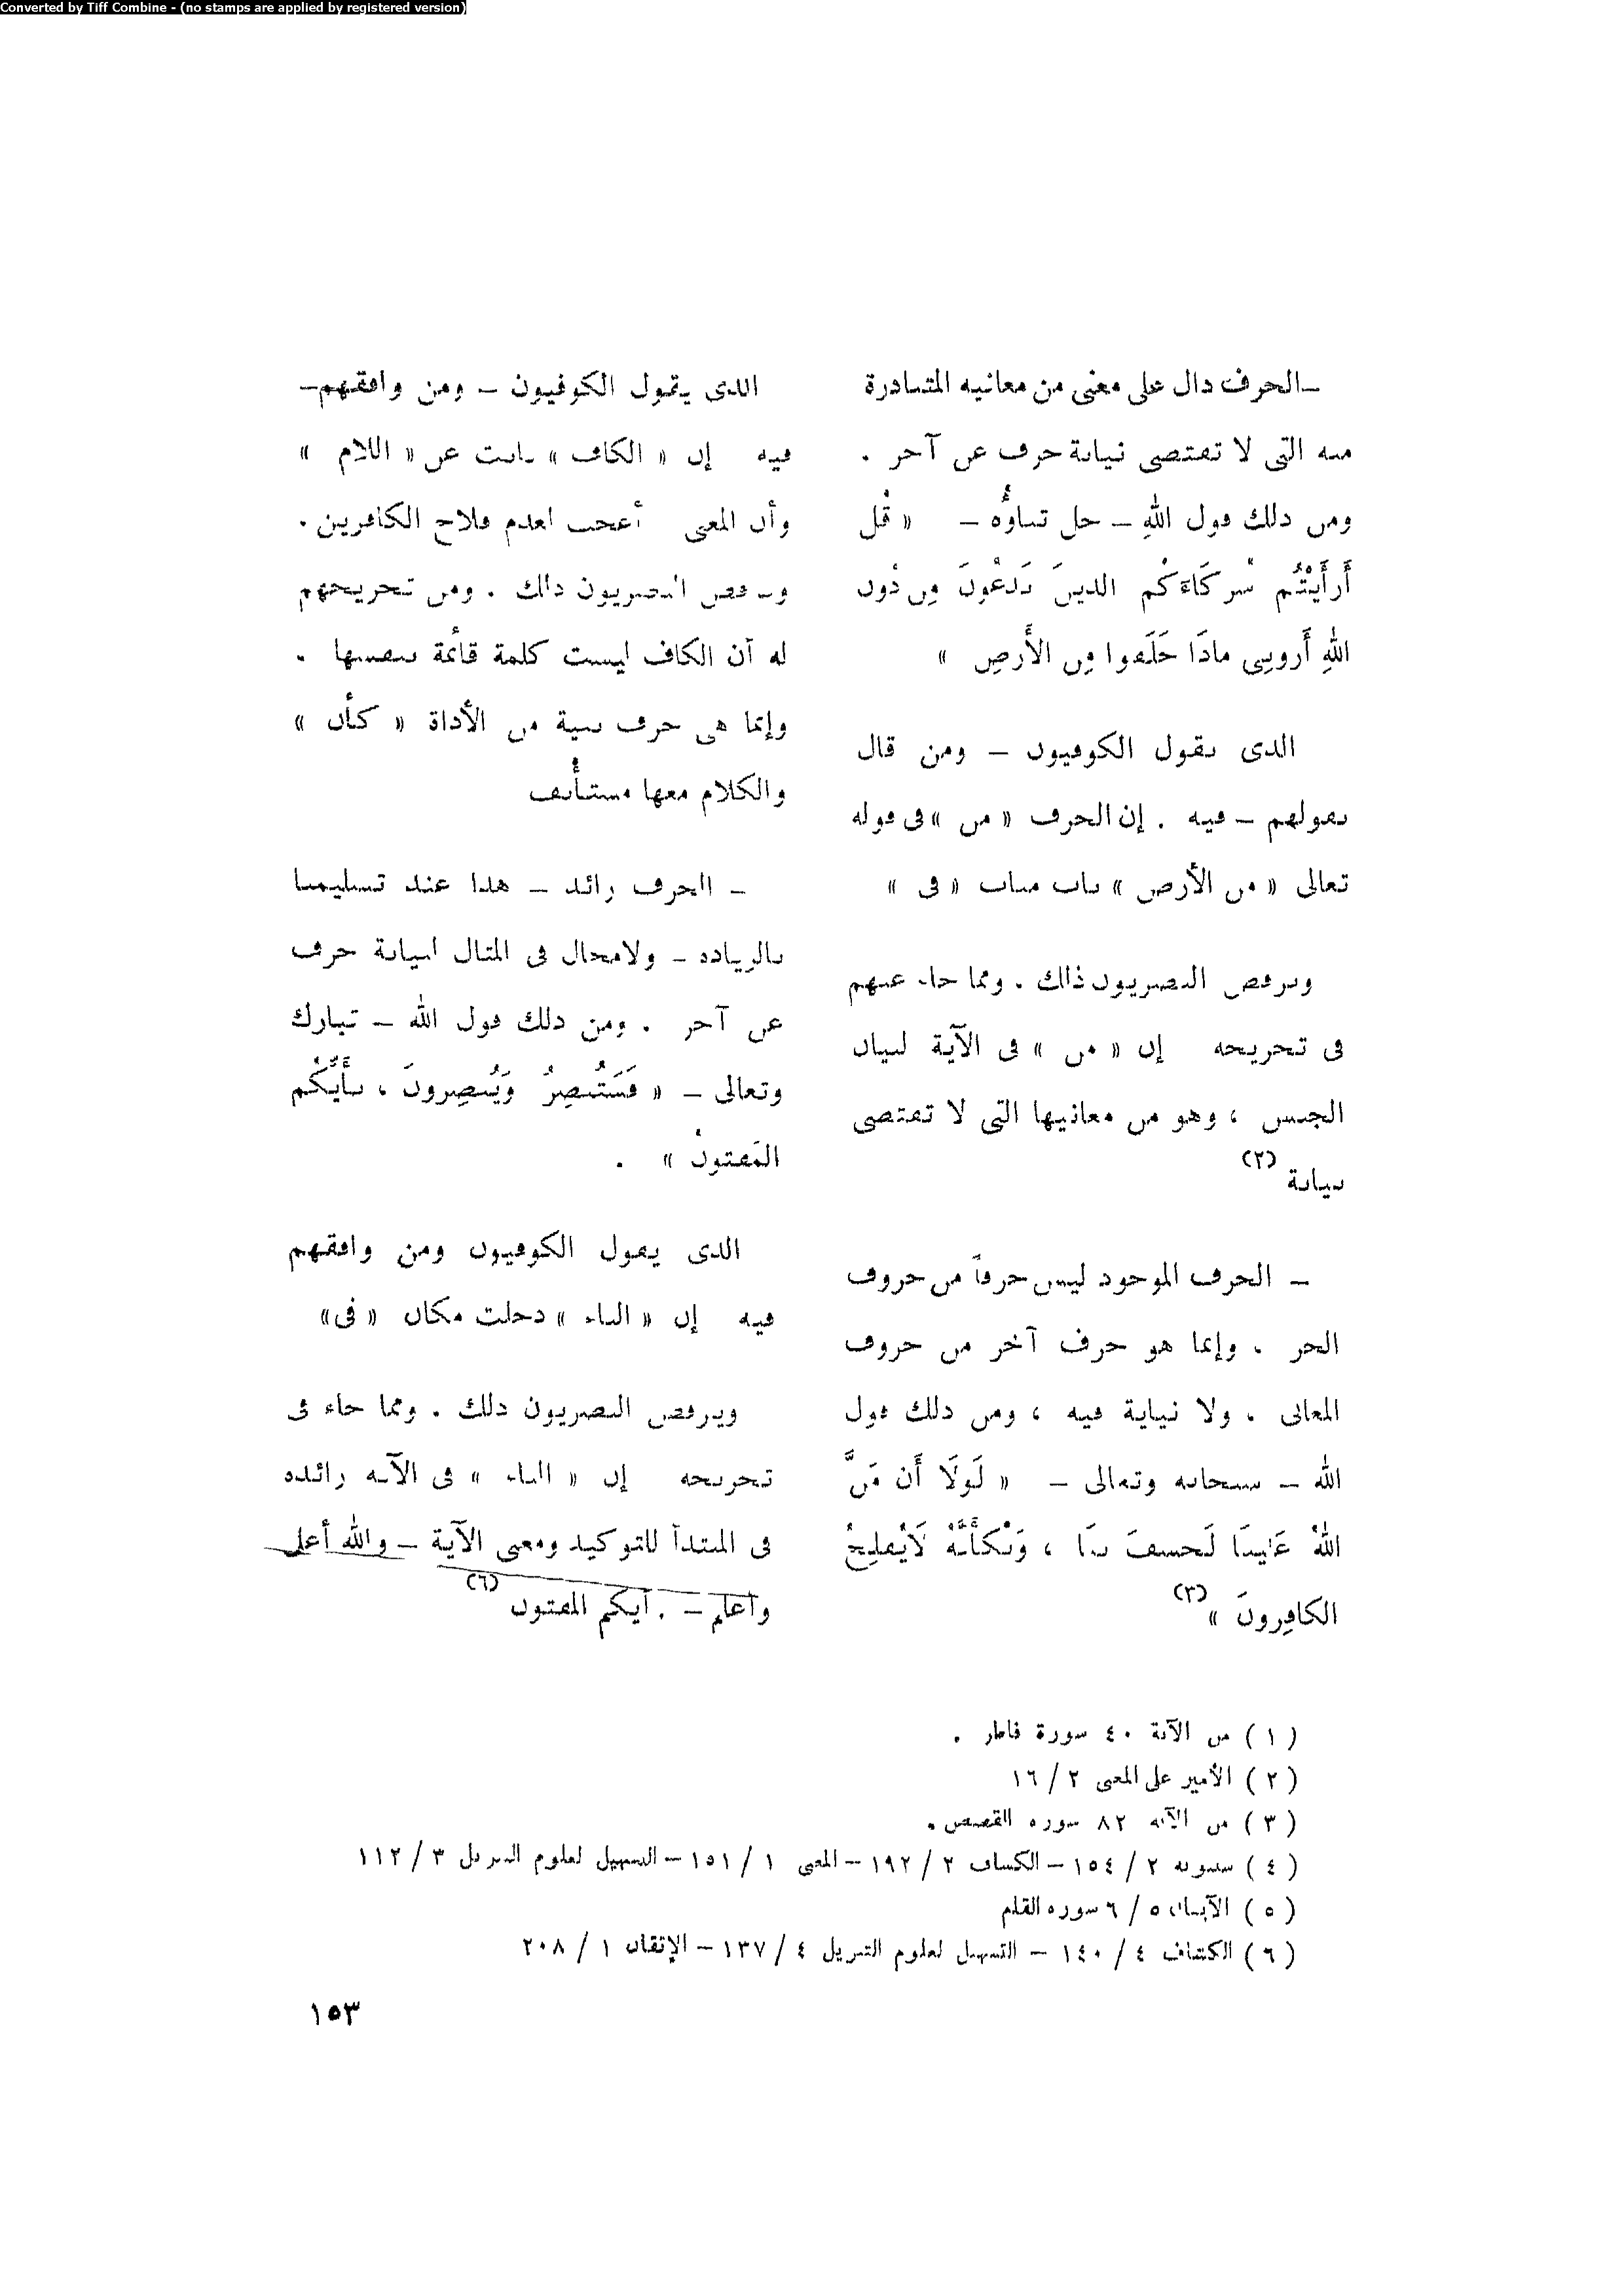 Converted by Tiff Combine - (no stamps are applied by registered version)
–الحرف دال على معنى من معانيه المتبادرة
منه التى لا تقتضى نيابة حرف عن آخر .
ومن ذلك قول اللهِ – جل ثناؤُه – « قُل
أَرَأَيْتُم شُركَاءَكُم الذينَ تَدْعُونَ مِن دُون
اللهِ أَرونِى ماذَا خَلَقوا مِن الأَرضِ »
الذى يقول الكوفيون – ومن قال
بقولهم – فيه . إن الحرف « من » فى قوله
تعالى « من الأرض » ناب مناب « فى »
ويرفض البصريون ذلك . ومما جاء عنهم
فى تخريجه إن « من » فى الآية لبيان
الجنس ، وهو من معانيها التى لا تقتضى
نيابة (٢)
– الحرف الموجود ليس حرفاً من حروف
الجر . وإنما هو حرف آخر من حروف
المعانى . ولا نيابة فيه ، ومن ذلك قول
الله – سبحانه وتعالى – « لَولَا أَن مَنَّ
اللهُ عَلَينَا لَخسفَ بنَا ، وَيْكَأَنَّهُ لَايُفلِحُ
الكافِرونَ » (٣)
الذى يقول الكوفيون – ومن وافقهم–
فيه إن « الكاف » نابت عن « اللام »
وأن المعنى أعجب لعدم فلاح الكافرين .
ويرفض البصريون ذلك . ومن تخريجهم
له أن الكاف ليست كلمة قائمة بنفسها .
وإنما هى حرف بنية من الأداة « كأن »
والكلام معها مستأنف
– الحرف زائد – هذا عند تسليمنا
بالزياده – ولامجال فى المثال لنيابة حرف
عن آخر . ومن ذلك قول الله – تبارك
وتعالى – « فَسَتُبصِرُ وَيُبصِرونَ ، بأَيِّكُم
المَفتونُ » .
الذى يقول الكوفيون ومن وافقهم
فيه إن « الباء » دخلت مكان « فى»
ويرفض البصريون ذلك . ومما جاء فى
تخريجه إن « الباء » فى الآية زائده
فى المبتدأ للتوكيد ومعنى الآية – والله أعلى
وأعلم – . أيكم المفتون (٦)
( ١ ) من الآية ٤٠ سورة فاطر .
( ٢ ) الأمير على المغنى ٢ / ١٦
( ٣ ) من الآيه ٨٢ سوره القصص .
( ٤ ) سيبويه ٢ / ١٥٤ – الكشاف ٢ / ١٩٢ – المغنى ١ / ١٥١ – التسهيل لعلوم التنزيل ٣ / ١١٢
( ٥ ) الآيتان ٥ / ٦ سوره القلم
( ٦ ) الكشاف ٤ / ١٤٠ – التسهيل لعلوم التنزيل ٤ / ١٣٧ – الإتقان ١ / ٢٠٨
١٥٣